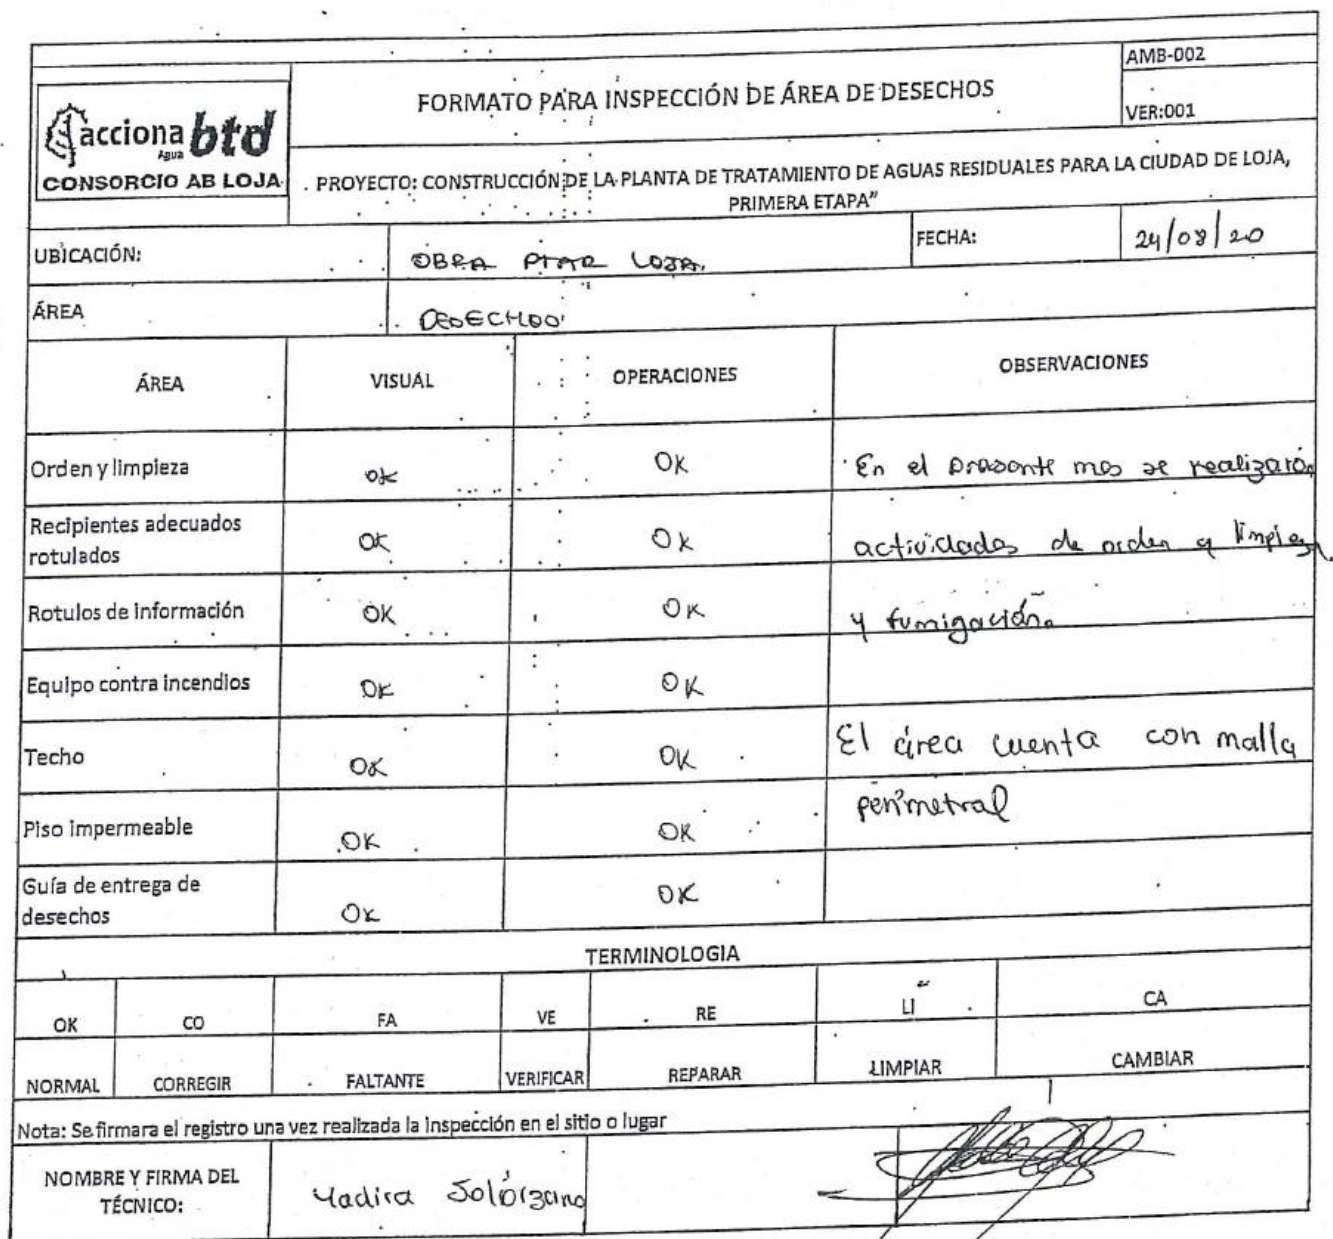 AMB-002
acciona Agua btd
CONSORCIO AB LOJA
FORMATO PARA INSPECCIÓN DE ÁREA DE DESECHOS
VER:001
PROYECTO: CONSTRUCCIÓN DE LA PLANTA DE TRATAMIENTO DE AGUAS RESIDUALES PARA LA CIUDAD DE LOJA,
PRIMERA ETAPA”
UBICACIÓN: OBRA PTAR LOJA. FECHA: 24/08/20
ÁREA DESECHOS
ÁREA VISUAL OPERACIONES OBSERVACIONES
Orden y limpieza OK OK En el presente mes se realizarón
Recipientes adecuados
rotulados OK OK actividades de orden y limpieza
Rotulos de información OK OK y fumigación.
Equipo contra incendios OK OK
Techo OK OK El área cuenta con malla
Piso impermeable OK OK perimetral
Guía de entrega de
desechos OK OK
TERMINOLOGIA
OK CO FA VE RE LI CA
NORMAL CORREGIR FALTANTE VERIFICAR REPARAR LIMPIAR CAMBIAR
Nota: Se firmara el registro una vez realizada la inspección en el sitio o lugar
NOMBRE Y FIRMA DEL
TÉCNICO: Yadira Solórzano